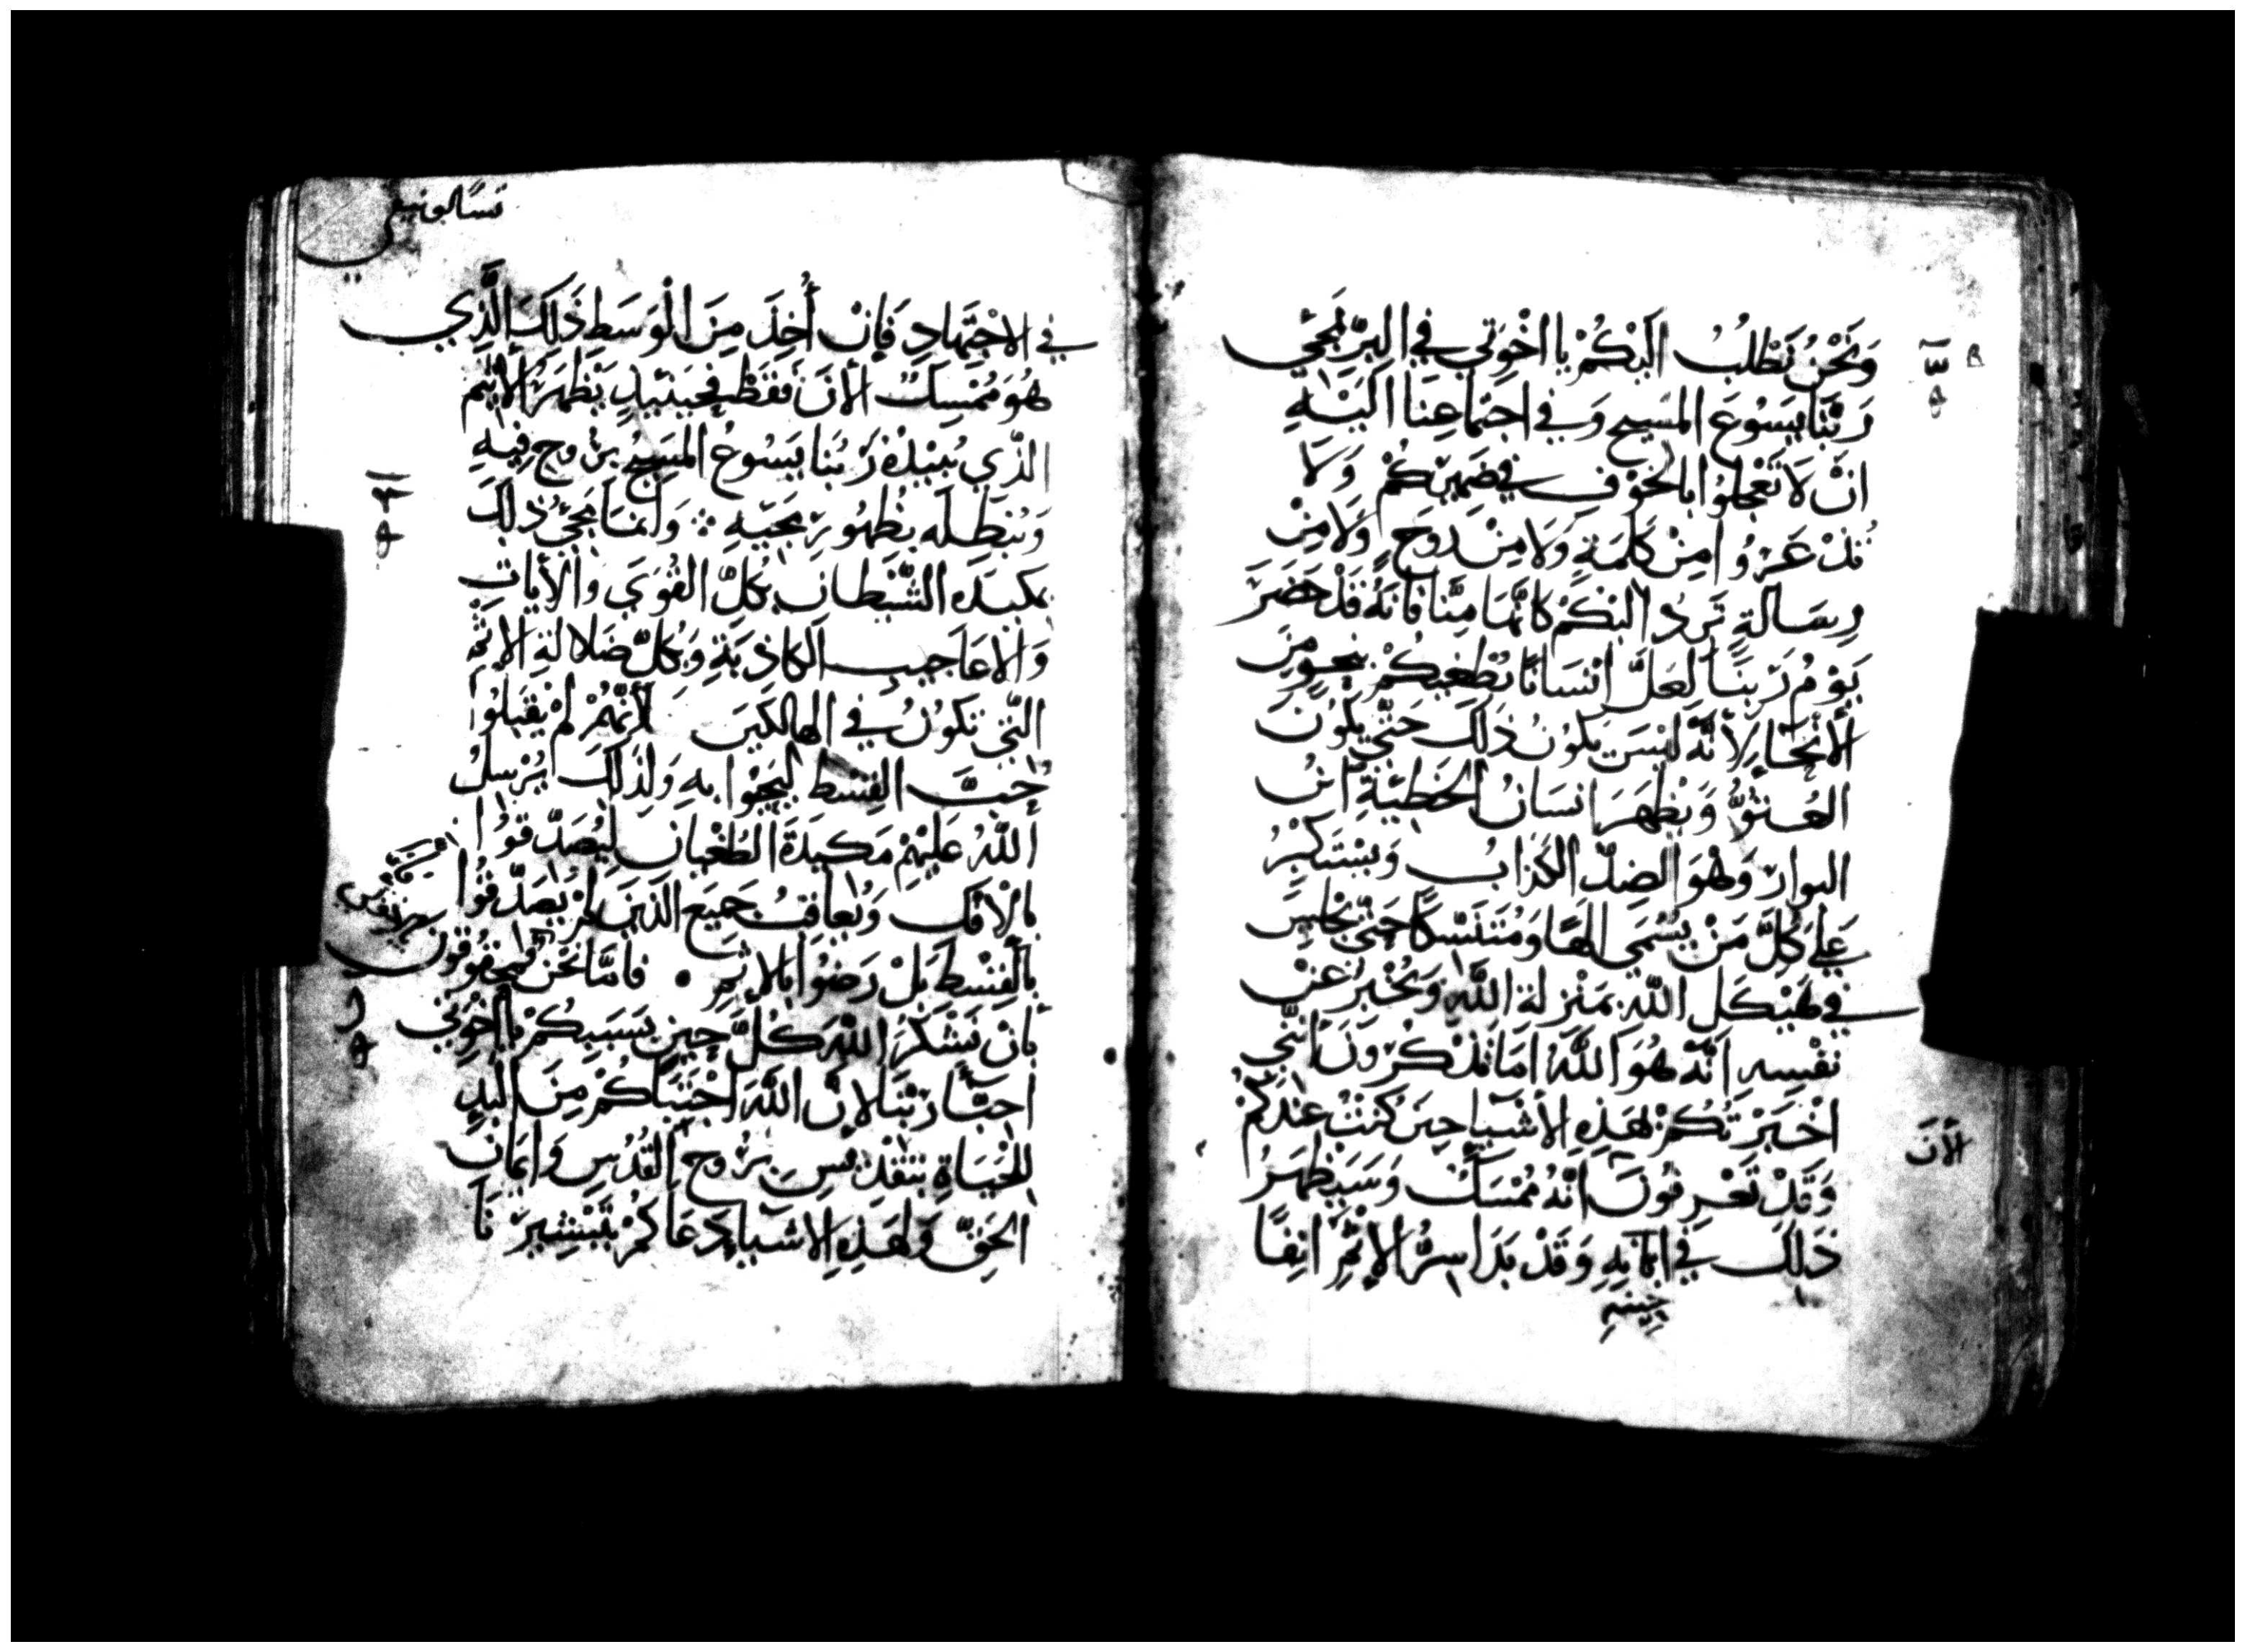 وَنَحْنُ نَطْلُبُ اليْكُمْ يا اخْوَتي في البِرّ بمَجَي
رَبّنَا يَسُوعَ المَسيح وَفي اجتماعِنَا الَيْهِ
انْ لَا تَعْجلوُا بالخوْفِ في ضَمِيركُمْ وَلَا
تذْعَرُوا مِنْ كَلمَةٍ وَلَا مِنْ روحٍ وَلَا مِنْ
رِسَالةٍ تَرِدُ اليْكمْ كانّهَا مِنَّا فانهُ قَدْ حَضَرَ
يَوْمُ رَبنَا لَعَلَّ انسَانًا يُطْغيكُمْ بنحوٍ مِنَ
الأنحَاء لِأنَّه ليْسَ يكونُ ذلك حَتّي يكونَ
العُنتوُّ وَيظهَرَ انسَانُ الخَطيّةِ ابنُ
البوار وَهْوَ الضِدّ الكذابُ وَيستكبرُ
عَلي كُلّ مَنْ يسْمَي الهًا وَمُتنَسّكًا حَتّي يجْلِسَ
في هَيْكَلِ اللّهِ بمَنْزلةِ اللّهِ وَيُخْبِرُ عَنْ
نفْسِهِ انَّهُ هُوَ اللَّهُ امَا تذْكرُونَ انّني
اخْبَرْتكُمْ بهَذِهِ الأشيَا حِينَ كُنتُ عِنْدَكُمْ
وَقَدْ تَعْرِفُونَ الأنَ انّهُ مُمْسَكٌ وَسَيظهَرُ
ذلِكَ في ابّانِهِ وَقَدْ بَدَا سِرُّ الإثمِ انِفًا
حِينِهِ
الأنَ
تسَالونيقي
في الاجْتِهادِ فَإنْ أُخِذَ مِنَ الْوَسَطِ ذَلكَ الَّذي
هُوَ مُمْسِكٌ الأنَ فقَطْ فحِينَيذٍ يَظهَرُ الأثيم
الذّي يُبيْدُهُ رَبُنا يَسُوعُ المَسيحُ برُوح فِيهِ
وَيُبَطِلَه بظهُورِ مجَيّهِ وَانمَا مَجيُ ذلك
بمكيدَةِ الشّيْطانِ بكلّ القُوَي وَالأياتِ
وَالاعَاجيبِ الكاذبَةِ وَبكلّ ضَلالةِ الاثمِ
التّي تكوُنُ في الهالكينَ لأنَّهُمْ لمْ يقبَلوُا
حُبَّ القِسْطِ ليَحيَوْا بهِ وَلذَلكَ يُرْسِلُ
اللّهُ عَليْهِمْ مَكيدَةَ الطُغْيانِ لِيُصَدّقوُا
بالافكِ وَيُعاقبُ جميعَ الذّينَ لمْ يُصَدّقُوا
بالْقِسْطِ بَلْ رَضوُا بالاثمِ فامّا نَحَنُ فمحقوُقونَ
بأنْ نشْكُرَ اللّهَ كُلّ حِينٍ بسَببكمْ يا اخوَتي
احبّاءَ رَبّنَا لانّ اللّهَ اجْتَبَاكمْ مِنَ البَدِ
للحَيَاةِ بتقْديسِ برُوح القُدُسِ وَايمَانِ
الحَقِّ وَلهَذِهِ الاشيَا دَعَاكمْ بتَبْشِيرِنَا